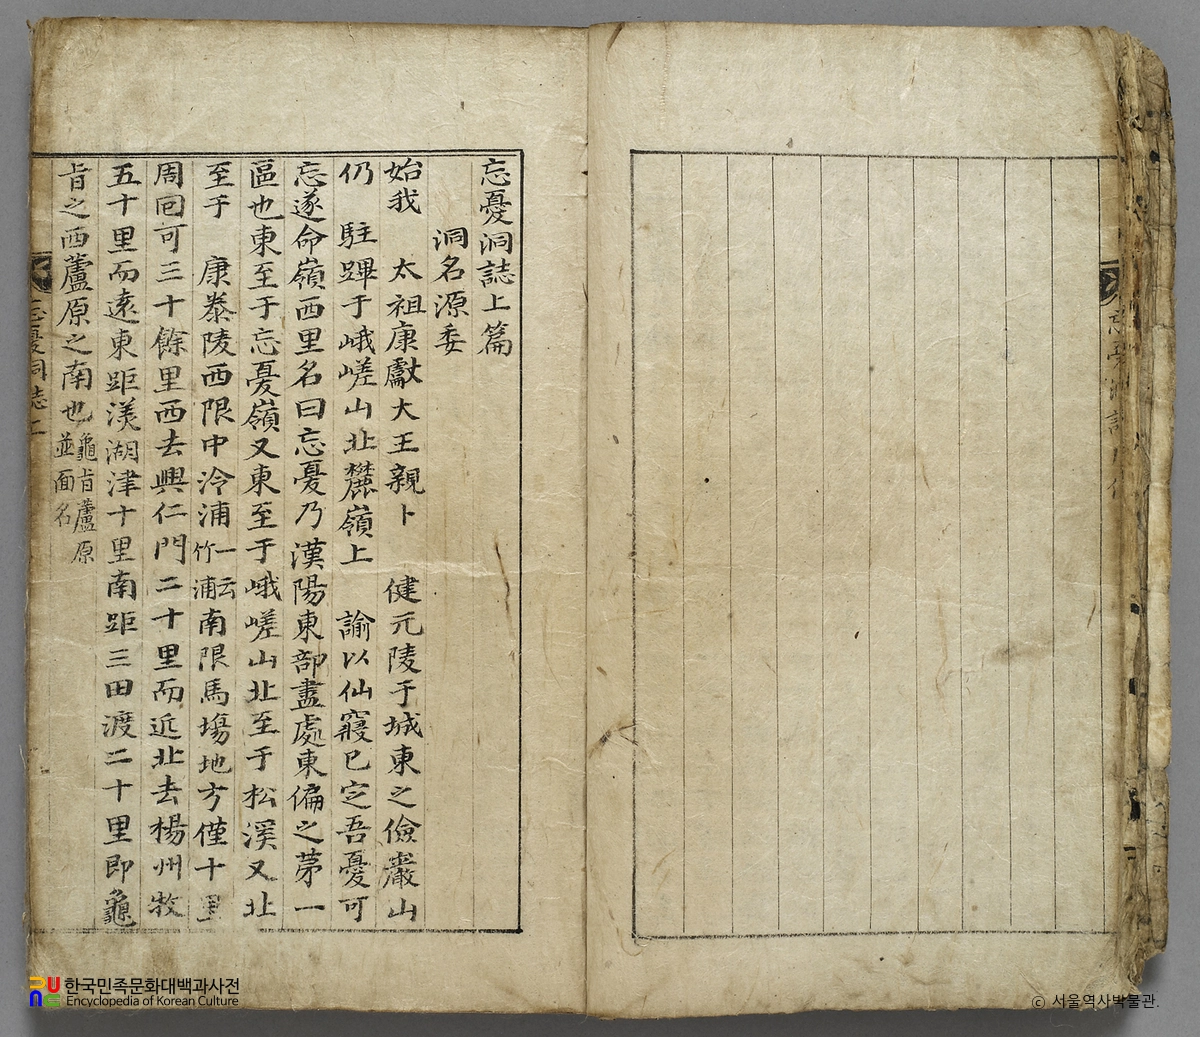 忘憂洞誌上篇
洞名源委
始我 太祖康獻大王親卜 健元陵于城東之儉巖山
仍 駐蹕于峨嵯山北麓嶺上 諭以仙寢已定吾憂可
忘遂命嶺西里名曰忘憂乃漢陽東部盡處東偏之第一
區也東至于忘憂嶺又東至于峨嵯山北至于松溪又北
至于 康泰陵西限中泠浦一云竹浦南限馬場地方僅十里
周回可三十餘里西去興仁門二十里而近北去楊州牧
五十里而遠東距渼湖津十里南距三田渡二十里即龜
旨之西蘆原之南也龜旨蘆原並面名
忘憂洞誌
한국민족문화대백과사전
Encyclopedia of Korean Culture
ⓒ 서울역사박물관.